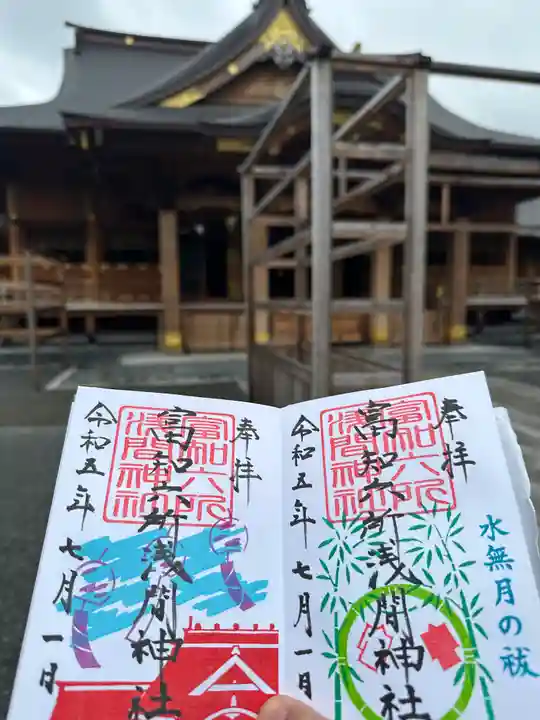 奉拝
富知六所浅間神社
令和五年七月一日
富知六所
浅間神社
水無月の祓
奉拝
富知六所浅間神社
令和五年七月一日
富知六所
浅間神社